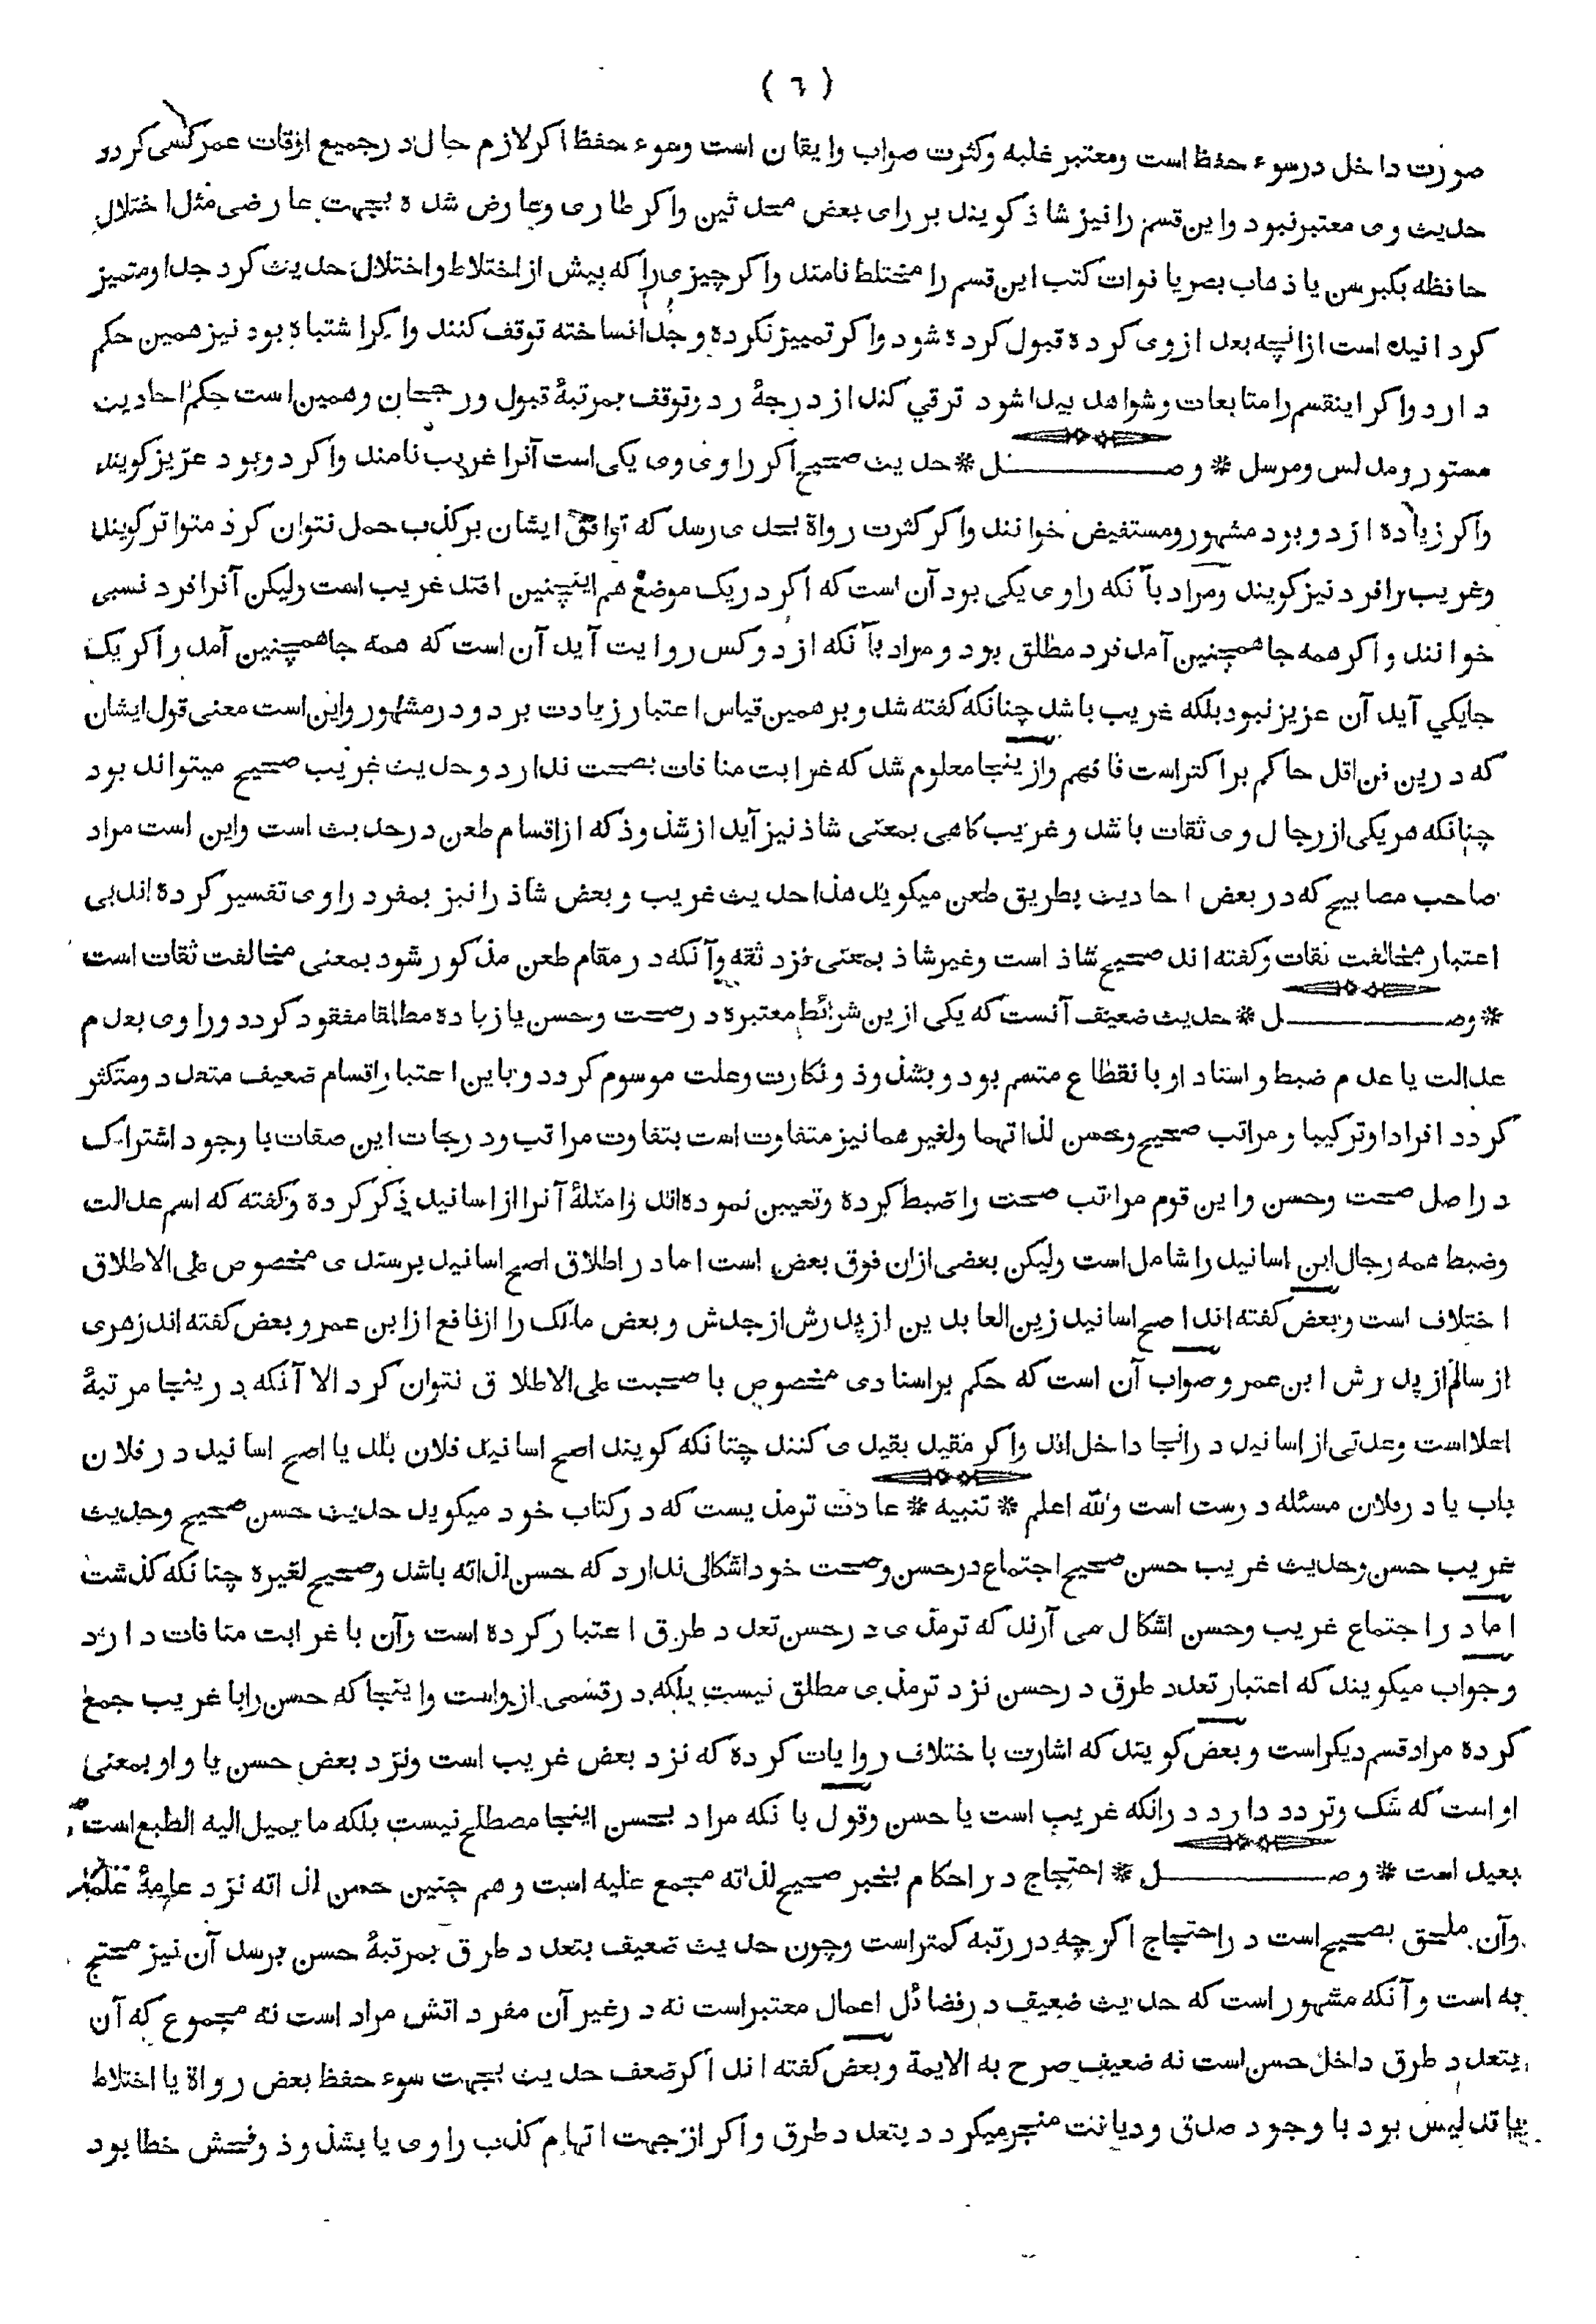 ( ٦ )
صورت داخل در سوء حفظ است ومعتبر غلبه وكثرت صواب وايقان است وسوء حفظ اكر لازم حال در جميع اوقات عمر كسى كردد
حديث وى معتبر نبود واين قسم را نيز شاذ كويند بر راى بعض محدثين واكر طارى وعارض شده بجهت عارضى مثل اختلال
حافظه بكبر سن يا ذهاب بصر يا فوات كتب اين قسم را مختلط نامند واكر چيزى را كه پيش از اختلاط واختلال حديث كرد جدا ومتميز
كردانيده است ازانچه بعد از وى كرده قبول كرده شود واكر تمييز نكرده وجدا نساخته توقف كنند واكر اشتباه بود نيز همين حكم
دارد واكر اينقسم را متابعات وشواهد پيدا شود ترقي كند از درجهٔ رد وتوقف بمرتبهٔ قبول ورجحان وهمين است حكم احاديث
مستور ومدلس ومرسل * وصــــل * حديث صحيح اكر راوى وى يكى است آنرا غريب نامند واكر دو بود عزيز كويند
واكر زياده از دو بود مشهور ومستفيض خوانند واكر كثرت رواة بحدى رسد كه توافق ايشان بر كذب حمل نتوان كرد متواتر كويند
وغريب را فرد نيز كويند ومراد بآنكه راوى يكى بود آن است كه اكر در يك موضع هم اينچنين افتد غريب است وليكن آنرا فرد نسبى
خوانند واكر همه جا همچنين آمد فرد مطلق بود ومراد بآنكه از دو كس روايت آيد آن است كه همه جا همچنين آمد واكر يک
جايكي آيد آن عزيز نبود بلكه غريب باشد چنانكه كفته شد وبر همين قياس اعتبار زيادت بر دو در مشهور واين است معنى قول ايشان
كه درين فن اقل حاكم بر اكثر است فافهم وازينجا معلوم شد كه غرابت منافات بصحت ندارد وحديث غريب صحيح ميتواند بود
چنانكه هر يكى از رجال وى ثقات باشد وغريب كاهى بمعنى شاذ نيز آيد از شذوذ كه از اقسام طعن در حديث است واين است مراد
صاحب مصابيح كه در بعض احاديث بطريق طعن ميكويد هذا حديث غريب وبعض شاذ را نيز بمفرد راوى تفسير كرده اند بى
اعتبار مخالفت ثقات وكفته اند صحيح شاذ است وغير شاذ بمعنى فرد ثقه وآنكه در مقام طعن مذكور شود بمعنى مخالفت ثقات است
* وصــــل * حديث ضعيف آنست كه يكى ازين شرائط معتبره در صحت وحسن يا زياده مطلقا مفقود كردد وراوى بعدم
عدالت يا عدم ضبط واسناد او بانقطاع متسم بود وبشذوذ ونكارت وعلت موسوم كردد وباين اعتبار اقسام ضعيف متعدد ومتكثر
كردد افرادا وتركيبا ومراتب صحيح وحسن لذاتهما ولغيرهما نيز متفاوت است بتفاوت مراتب ودرجات اين صفات با وجود اشتراک
در اصل صحت وحسن واين قوم مراتب صحت را ضبط كرده وتعيين نموده اند وامثلهٔ آنرا از اسانيد ذكر كرده وكفته كه اسم عدالت
وضبط همه رجال اين اسانيد را شامل است وليكن بعضى ازان فوق بعض است اما در اطلاق اصح اسانيد بر سندى مخصوص على الاطلاق
اختلاف است وبعض كفته اند اصح اسانيد زين العابدين از پدرش از جدش وبعض مالک را از نافع از ابن عمر وبعض كفته اند زهرى
از سالم از پدرش ابن عمر وصواب آن است كه حكم بر اسنادى مخصوص با صحيت على الاطلاق نتوان كرد الا آنكه درينجا مرتبهٔ
اعلا است وعدتى از اسانيد درانجا داخل اند واكر مقيد بقيدى كنند چنانكه كويند اصح اسانيد فلان بلد يا اصح اسانيد در فلان
باب يا در فلان مسئله درست است والله اعلم * تنبيه * عادت ترمذيست كه در كتاب خود ميكويد حديث حسن صحيح وحديث
غريب حسن وحديث غريب حسن صحيح اجتماع در حسن وصحت خود اشكالى ندارد كه حسن لذاته باشد وصحيح لغيره چنانكه كذشت
اما در اجتماع غريب وحسن اشكال مى آرند كه ترمذى در حسن تعدد طرق اعتبار كرده است وآن با غرابت منافات دارد
وجواب ميكويند كه اعتبار تعدد طرق در حسن نزد ترمذى مطلق نيست بلكه در قسمى ازو است واينجا كه حسن را با غريب جمع
كرده مراد قسم ديكر است وبعض كويند كه اشارت باختلاف روايات كرده كه نزد بعض غريب است ونزد بعض حسن يا واو بمعنى
او است كه شک وتردد دارد درانكه غريب است يا حسن وقول بآنكه مراد بحسن اينجا مصطلح نيست بلكه ما يميل اليه الطبع است
بعيد است * وصــــل * احتجاج در احكام بخبر صحيح لذاته مجمع عليه است وهم چنين حسن لذاته نزد عامهٔ علما
وآن ملحق بصحيح است در احتجاج اكرچه در رتبه كمتر است وچون حديث ضعيف بتعدد طرق بمرتبهٔ حسن برسد آن نيز محتج
به است وآنكه مشهور است كه حديث ضعيف در فضائل اعمال معتبر است نه در غير آن مفرداتش مراد است نه مجموع كه آن
بتعدد طرق داخل حسن است نه ضعيف صرح به الايمة وبعض كفته اند اكر ضعف حديث بجهت سوء حفظ بعض رواة يا اختلاط
يا تدليس بود با وجود صدق وديانت منجبر ميكردد بتعدد طرق واكر از جهت اتهام كذب راوى يا بشذوذ وفحش خطا بود